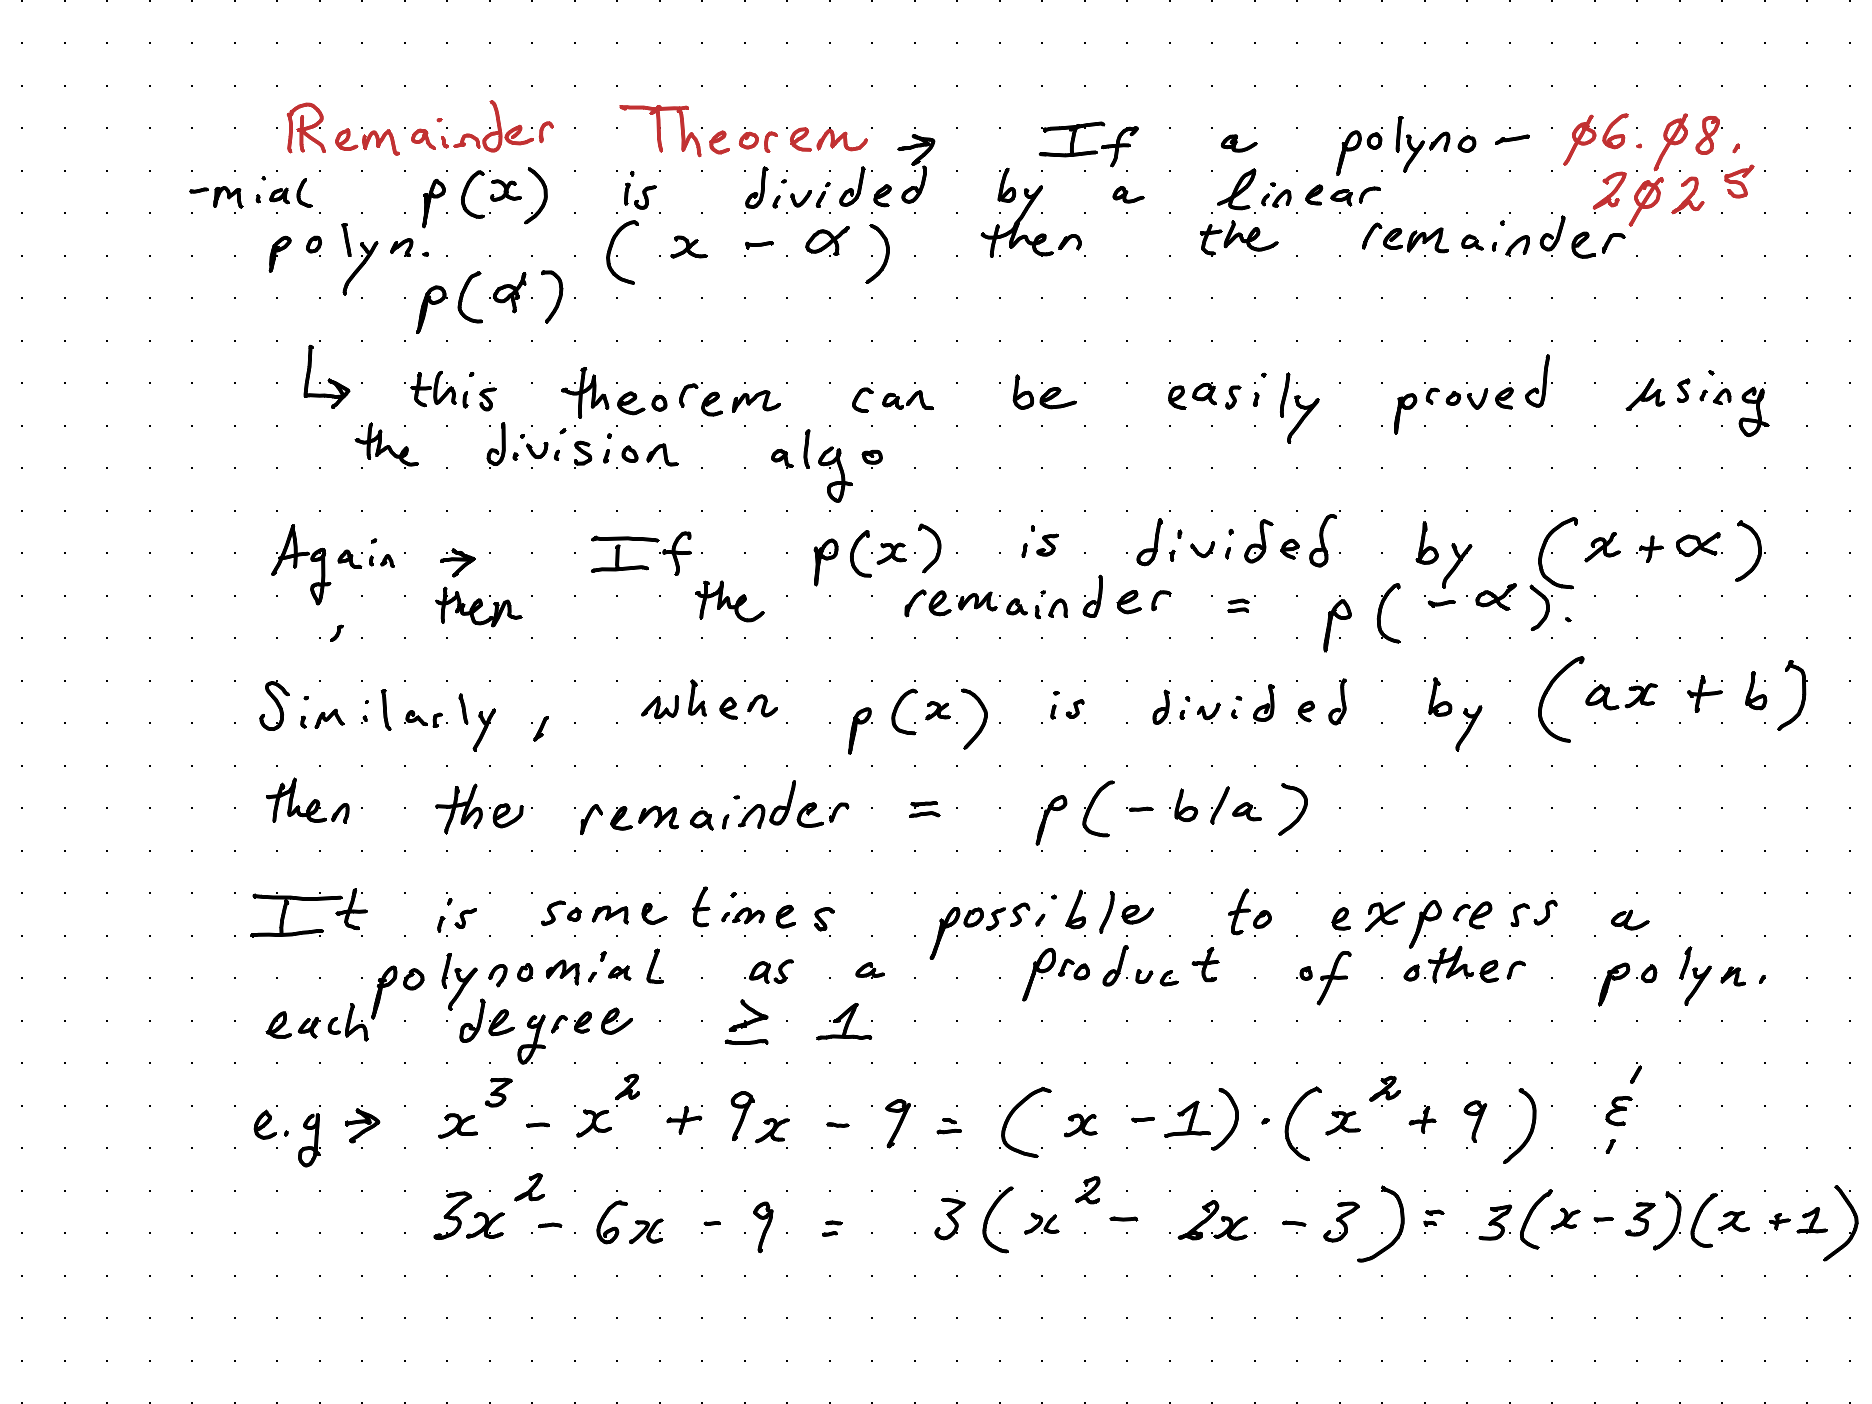 Remainder Theorem → If a polyno- 06.08.
-mial p(x) is divided by a linear 2025
polyn. (x - α) then the remainder
p(α)
↳ this theorem can be easily proved using
the division algo
Again → If p(x) is divided by (x+α)
, then the remainder = p(-α).
Similarly, when p(x) is divided by (ax + b)
then the remainder = p(-b/a)
It is sometimes possible to express a
polynomial as a product of other polyn.
each degree ≥ 1
e.g → x³ - x² + 9x - 9 = (x - 1)·(x² + 9) &
3x² - 6x - 9 = 3(x² - 2x - 3) = 3(x-3)(x+1)